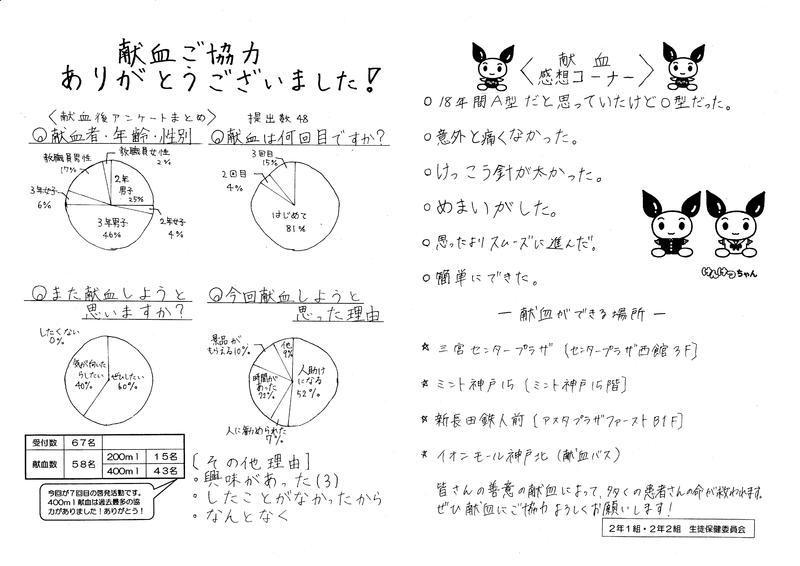 献血ご協力
ありがとうございました!
〈献血後アンケートまとめ〉 提出数 48
Q献血者・年齢・性別
教職員男性
17%
教職員女性
2%
2年
男子
25%
3年女子
6%
3年男子
46%
2年女子
4%
Q献血は何回目ですか?
3回目
15%
2回目
4%
はじめて
81%
Qまた献血しようと
思いますか?
したくない
0%
気が向いた
らしたい
40%
ぜひしたい
60%
Q今回献血しようと
思った理由
景品が
もらえる10%
他
9%
時間が
あった
22%
人助け
になる
52%
人に勧められた
7%
受付数 67名
献血数 58名
200ml 15名
400ml 43名
今回が7回目の啓発活動です。
400ml献血は過去最多の協
力がありました!ありがとう!
[その他理由]
・興味があった(3)
・したことがなかったから
・なんとなく
〈献血
感想コーナー〉
○18年間A型だと思っていたけどO型だった。
○意外と痛くなかった。
○けっこう針が太かった。
○めまいがした。
○思ったよりスムーズに進んだ。
○簡単にできた。
けんけつちゃん
ー献血ができる場所ー
☆三宮センタープラザ [センタープラザ西館3F]
☆ミント神戸15 (ミント神戸15階]
☆新長田鉄人前 [アスタプラザファーストB1F]
☆イオンモール神戸北(献血バス)
皆さんの善意の献血によって、多くの患者さんの命が救われます。
ぜひ献血にご協力よろしくお願いします!
2年1組・2年2組 生徒保健委員会